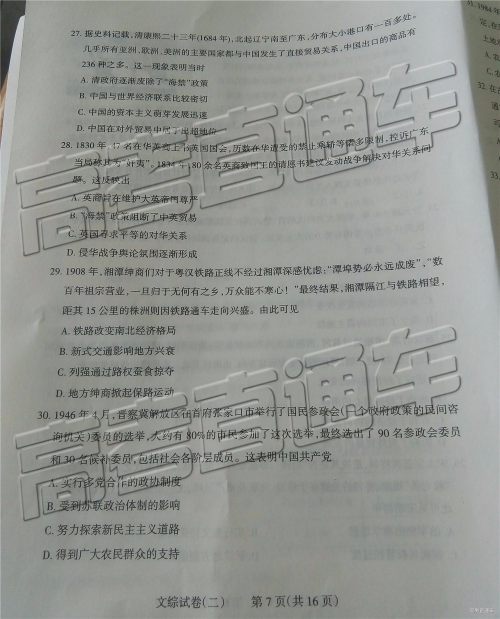 27. 据史料记载，清康熙二十三年(1684年)，北起辽宁南至广东，分布大小港口有一百多处。
几乎所有亚洲、欧洲、美洲的主要国家都与中国发生了直接贸易关系，中国出口的商品有
236 种之多。这一现象表明当时
A. 清政府逐渐废除了“海禁”政策
B. 中国与世界经济联系比较密切
C. 中国的资本主义萌芽发展迅速
D. 中国在对外贸易中居于出超地位
28. 1830 年，47 名在华英商上书英国国会，历数在华遭受的禁止乘轿等诸多限制，控诉广东
当局称其为“奸夷”。1834 年，80 余名英商致国王的请愿书建议发动战争解决对华关系问
题。这反映出
A. 英商旨在维护大英帝国尊严
B. “海禁”政策阻断了中英贸易
C. 英国寻求平等的对华关系
D. 侵华战争舆论氛围逐渐形成
29. 1908 年，湘潭绅商们对于粤汉铁路正线不经过湘潭深感忧虑：“潭埠势必永远成废”，“数
百年祖宗营业，一旦归于无何有之乡，万众能不寒心！”最终结果，湘潭隔江与铁路相望，
距其 15 公里的株洲则因铁路通车走向兴盛。由此可见
A. 铁路改变南北经济格局
B. 新式交通影响地方兴衰
C. 列强通过路权蚕食掠夺
D. 地方绅商掀起保路运动
30. 1946 年 4 月，晋察冀解放区在首府张家口市举行了国民参政会(一个政府政策的民间咨
询机关)委员的选举，大约有 80%的市民参加了这次选举，最终选出了 90 名参政会委员
和 30 名候补委员，包括社会各阶层成员。这表明中国共产党
A. 实行多党合作的政协制度
B. 受到苏联政治体制的影响
C. 努力探索新民主主义道路
D. 得到广大农民群众的支持
文综试卷(二) 第 7 页(共 16 页)
高考直通车
高考直通车
高考直通车